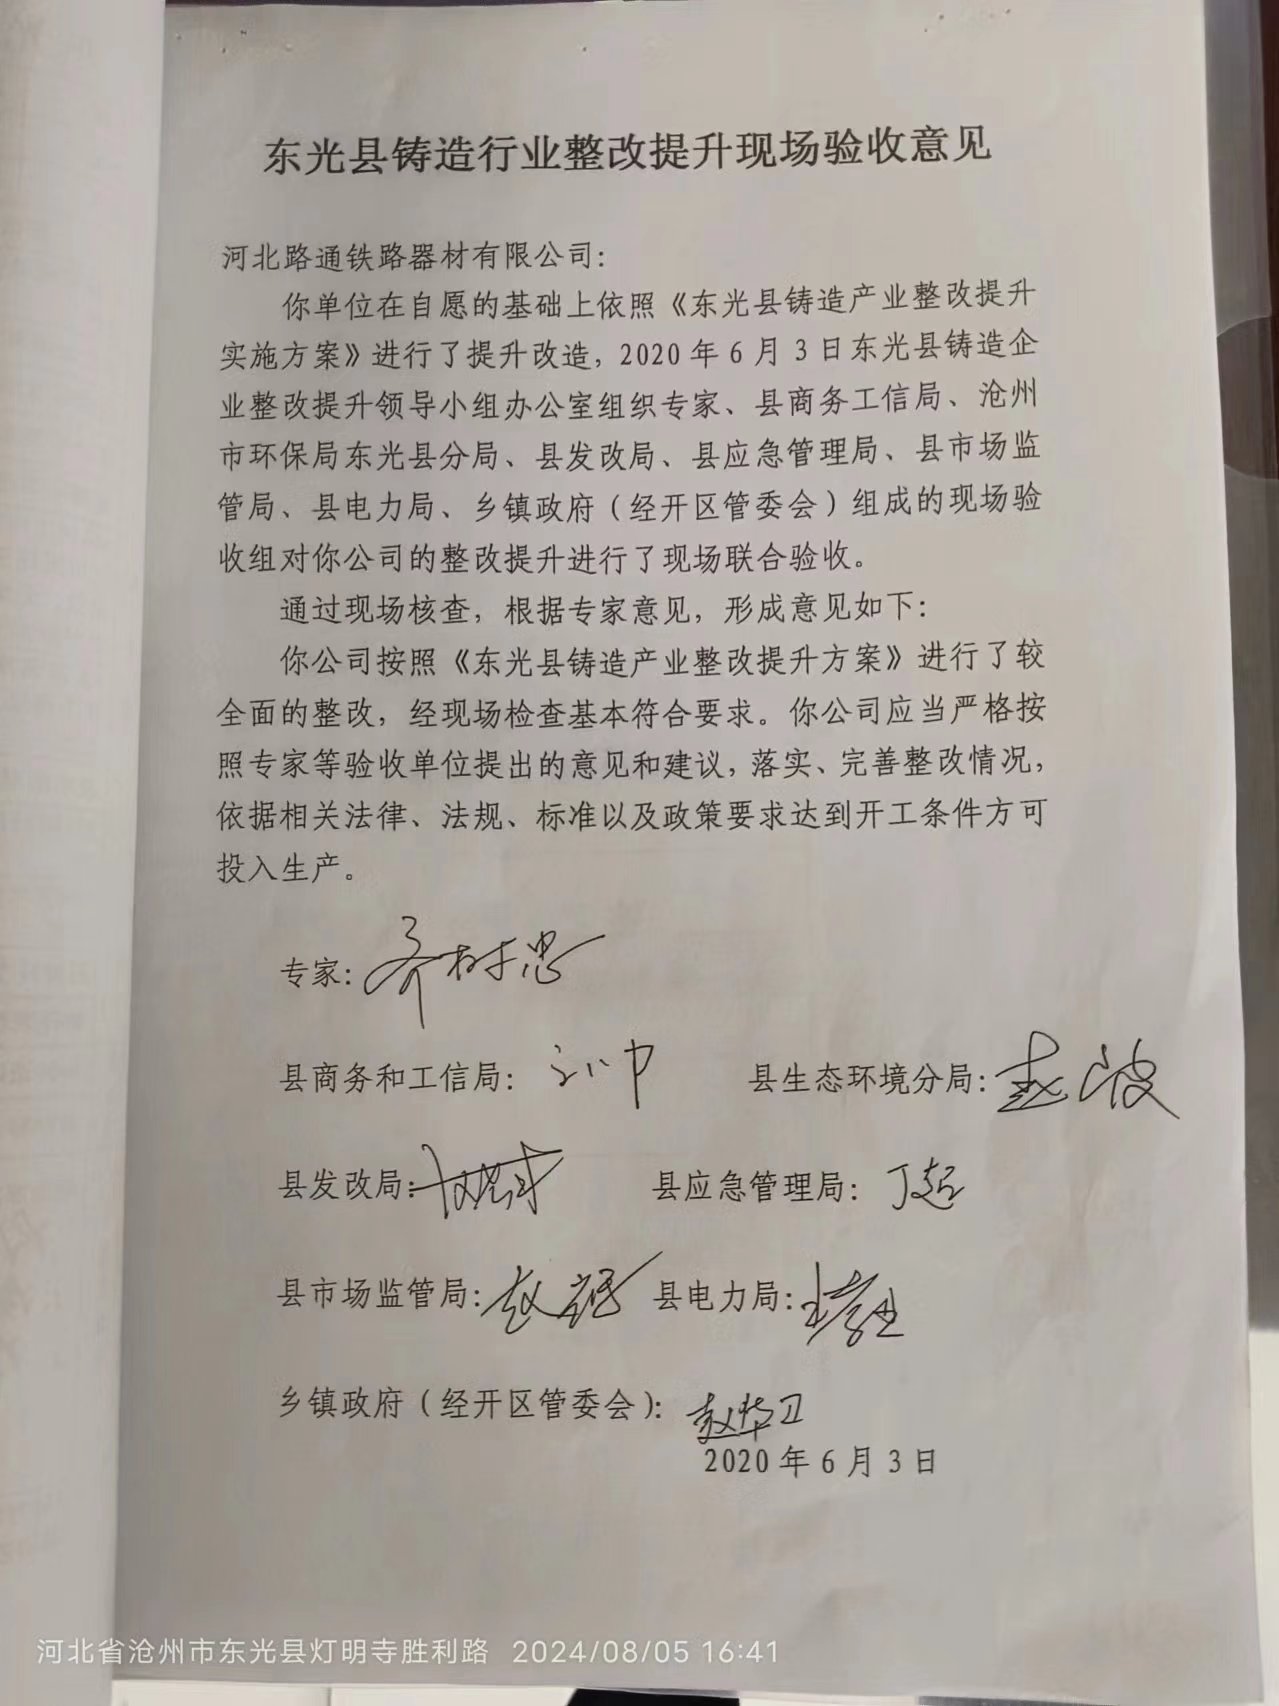 东光县铸造行业整改提升现场验收意见
河北路通铁路器材有限公司：
你单位在自愿的基础上依照《东光县铸造产业整改提升
实施方案》进行了提升改造，2020年6月3日东光县铸造企
业整改提升领导小组办公室组织专家、县商务工信局、沧州
市环保局东光县分局、县发改局、县应急管理局、县市场监
管局、县电力局、乡镇政府（经开区管委会）组成的现场验
收组对你公司的整改提升进行了现场联合验收。
通过现场核查，根据专家意见，形成意见如下：
你公司按照《东光县铸造产业整改提升方案》进行了较
全面的整改，经现场检查基本符合要求。你公司应当严格按
照专家等验收单位提出的意见和建议，落实、完善整改情况，
依据相关法律、法规、标准以及政策要求达到开工条件方可
投入生产。
专家：齐树忠
县商务和工信局： 县生态环境分局：
县发改局： 县应急管理局：丁超
县市场监管局： 县电力局：
乡镇政府（经开区管委会）：赵华卫
2020年6月3日
河北省沧州市东光县灯明寺胜利路 2024/08/05 16:41